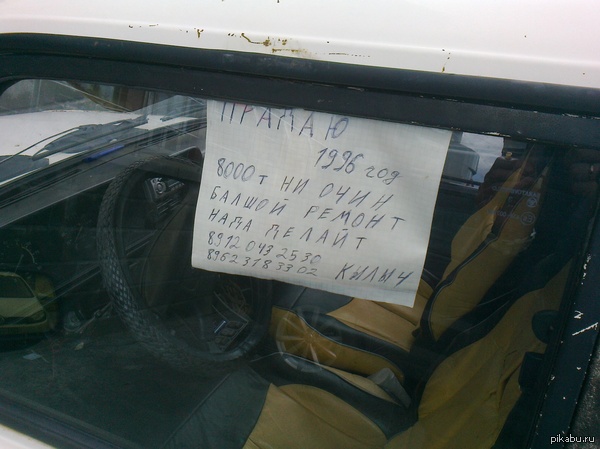 ПРАДАЮ
1996 год
8000т НИ ОЧИН
БАЛШОЙ РЕМОНТ
НАДА ДЕЛАЙТ
8912 043 25 30
8962 318 33 02 КЫЛЫЧ
pikabu.ru